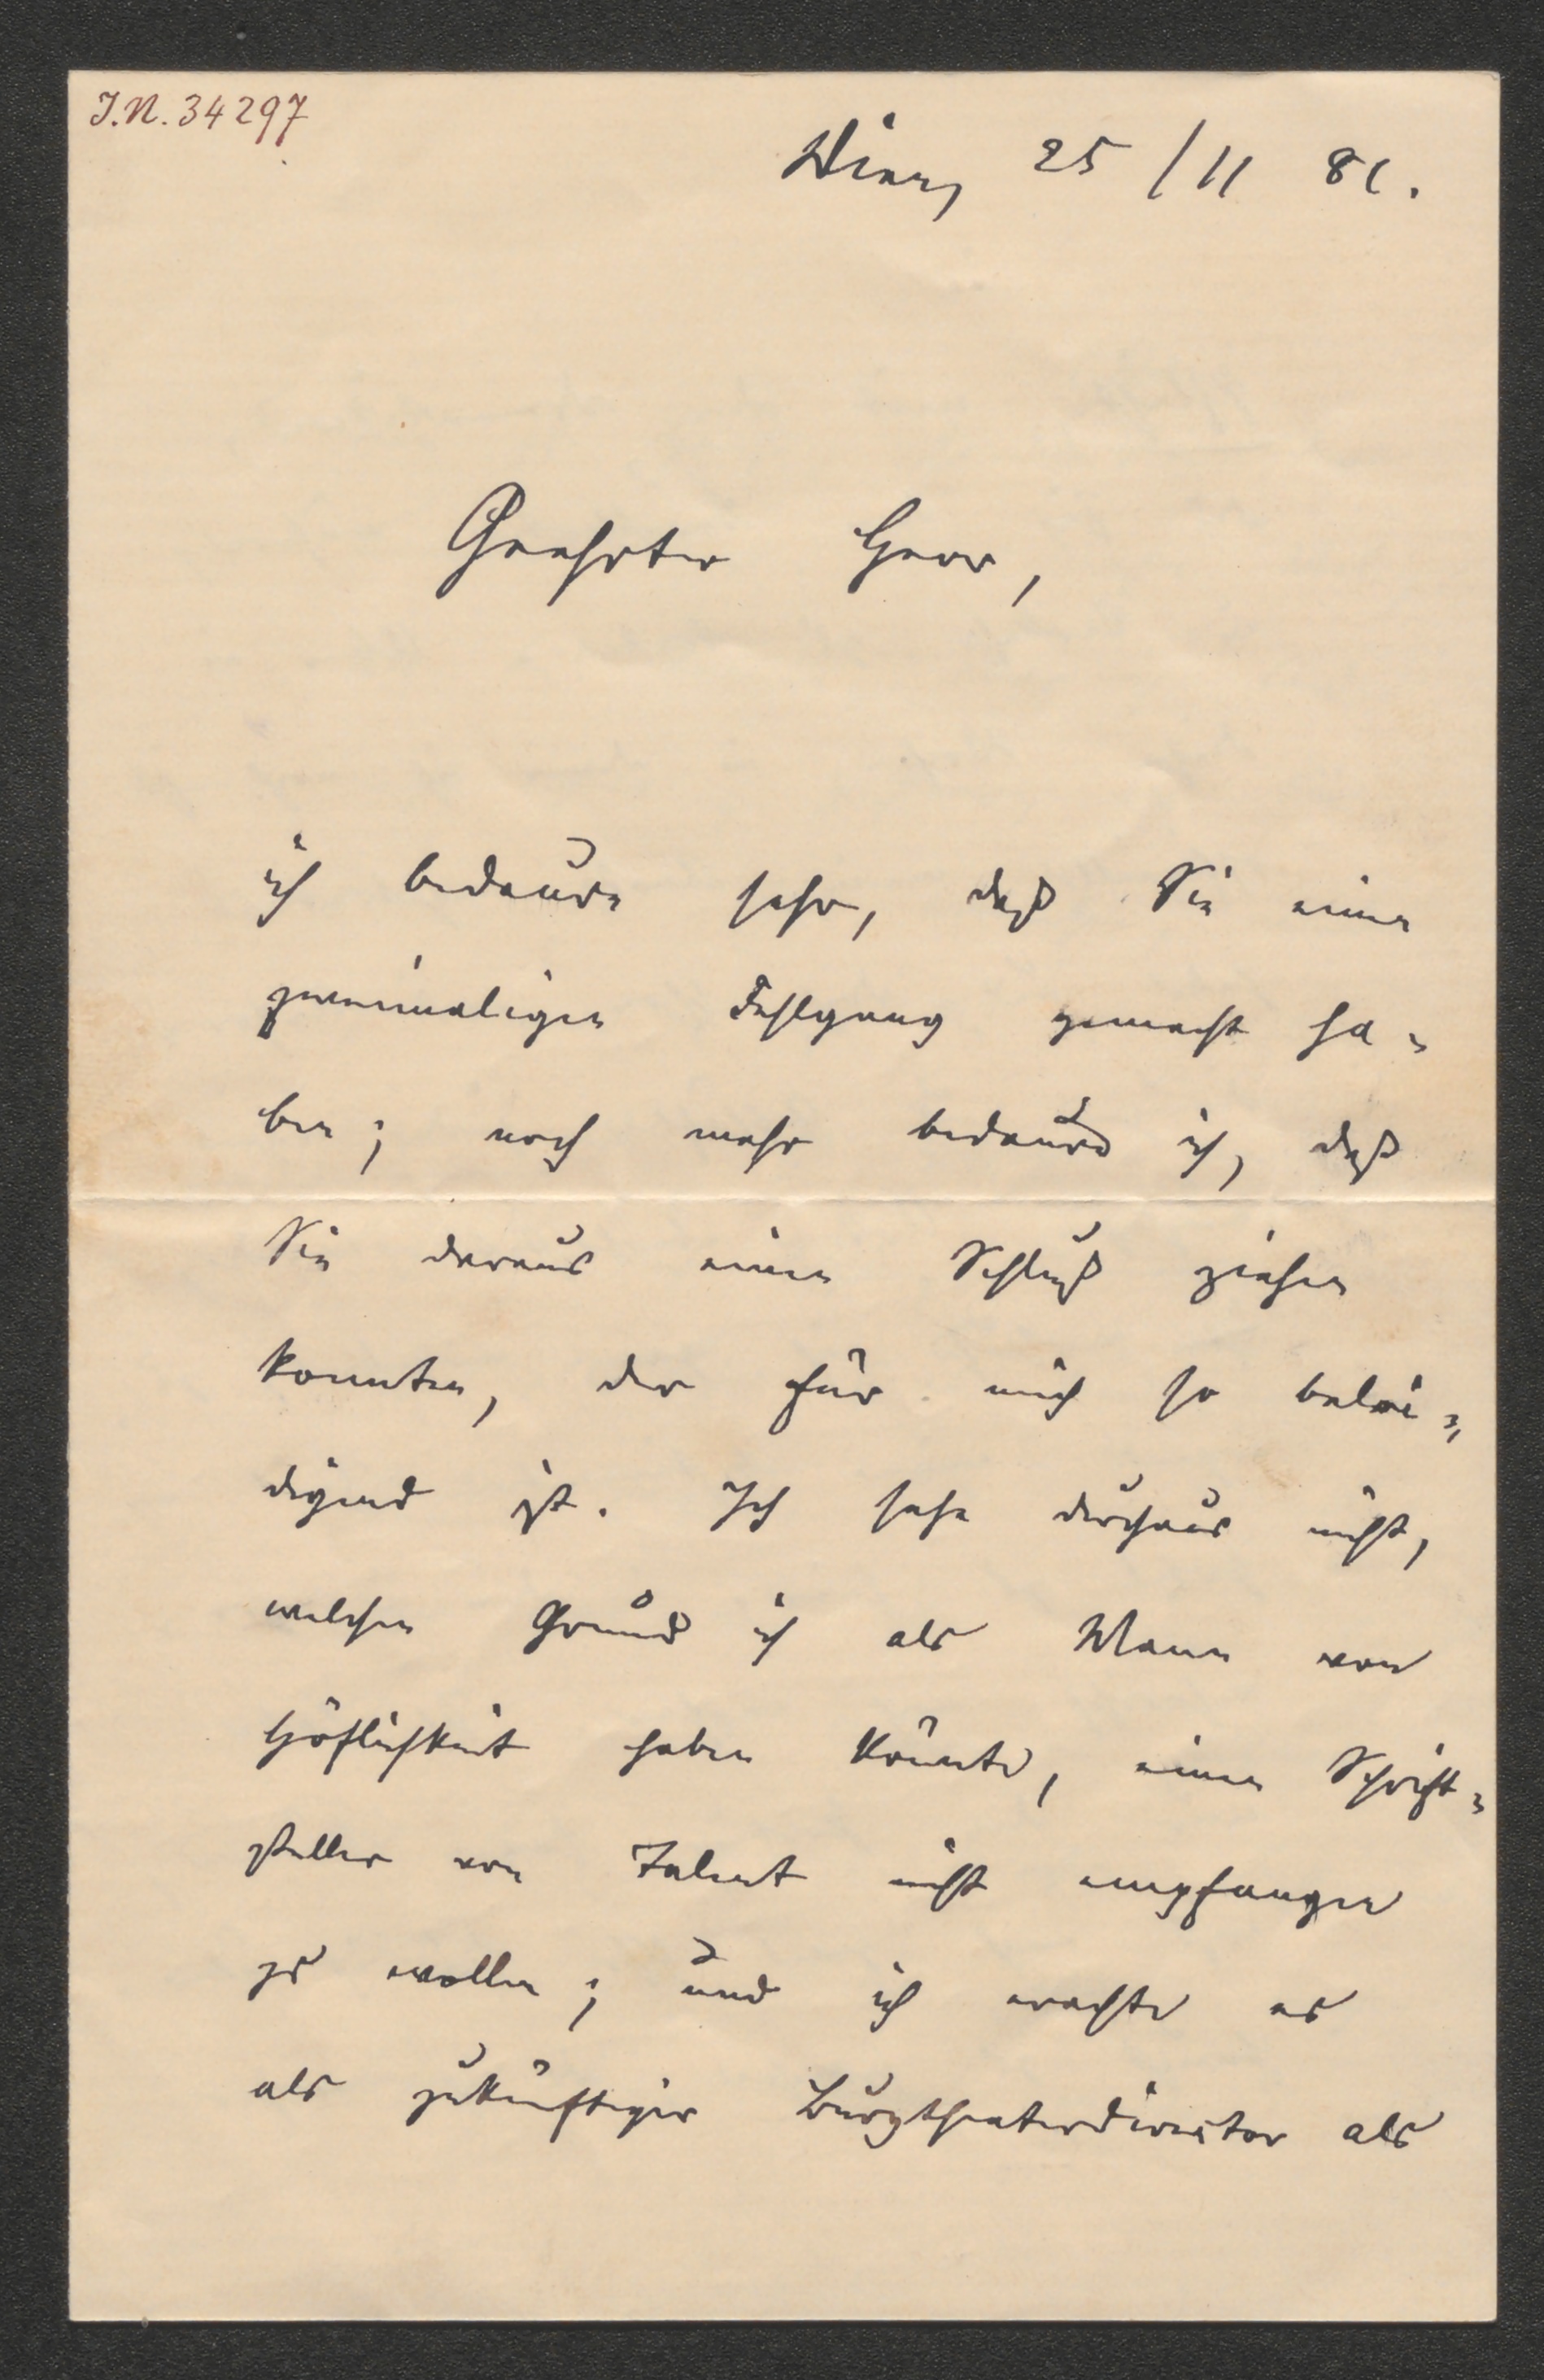 J.N. 34297
Wien, 25/11 81.
Geehrter Herr,
ich bedaure sehr, daß Sie einen
zweimaligen Fehlgang gemacht ha-
ben; noch mehr bedaure ich, daß
Sie daraus einen Schluß ziehen
konnten, der für mich so belei-
digend ist. Ich sehe durchaus nicht,
welchen Grund ich als Mann von
Höflichkeit haben könnte, einen Schrift-
steller von Talent nicht empfangen
zu wollen; und ich erachte es
als zukünftiger Burgtheaterdirector als